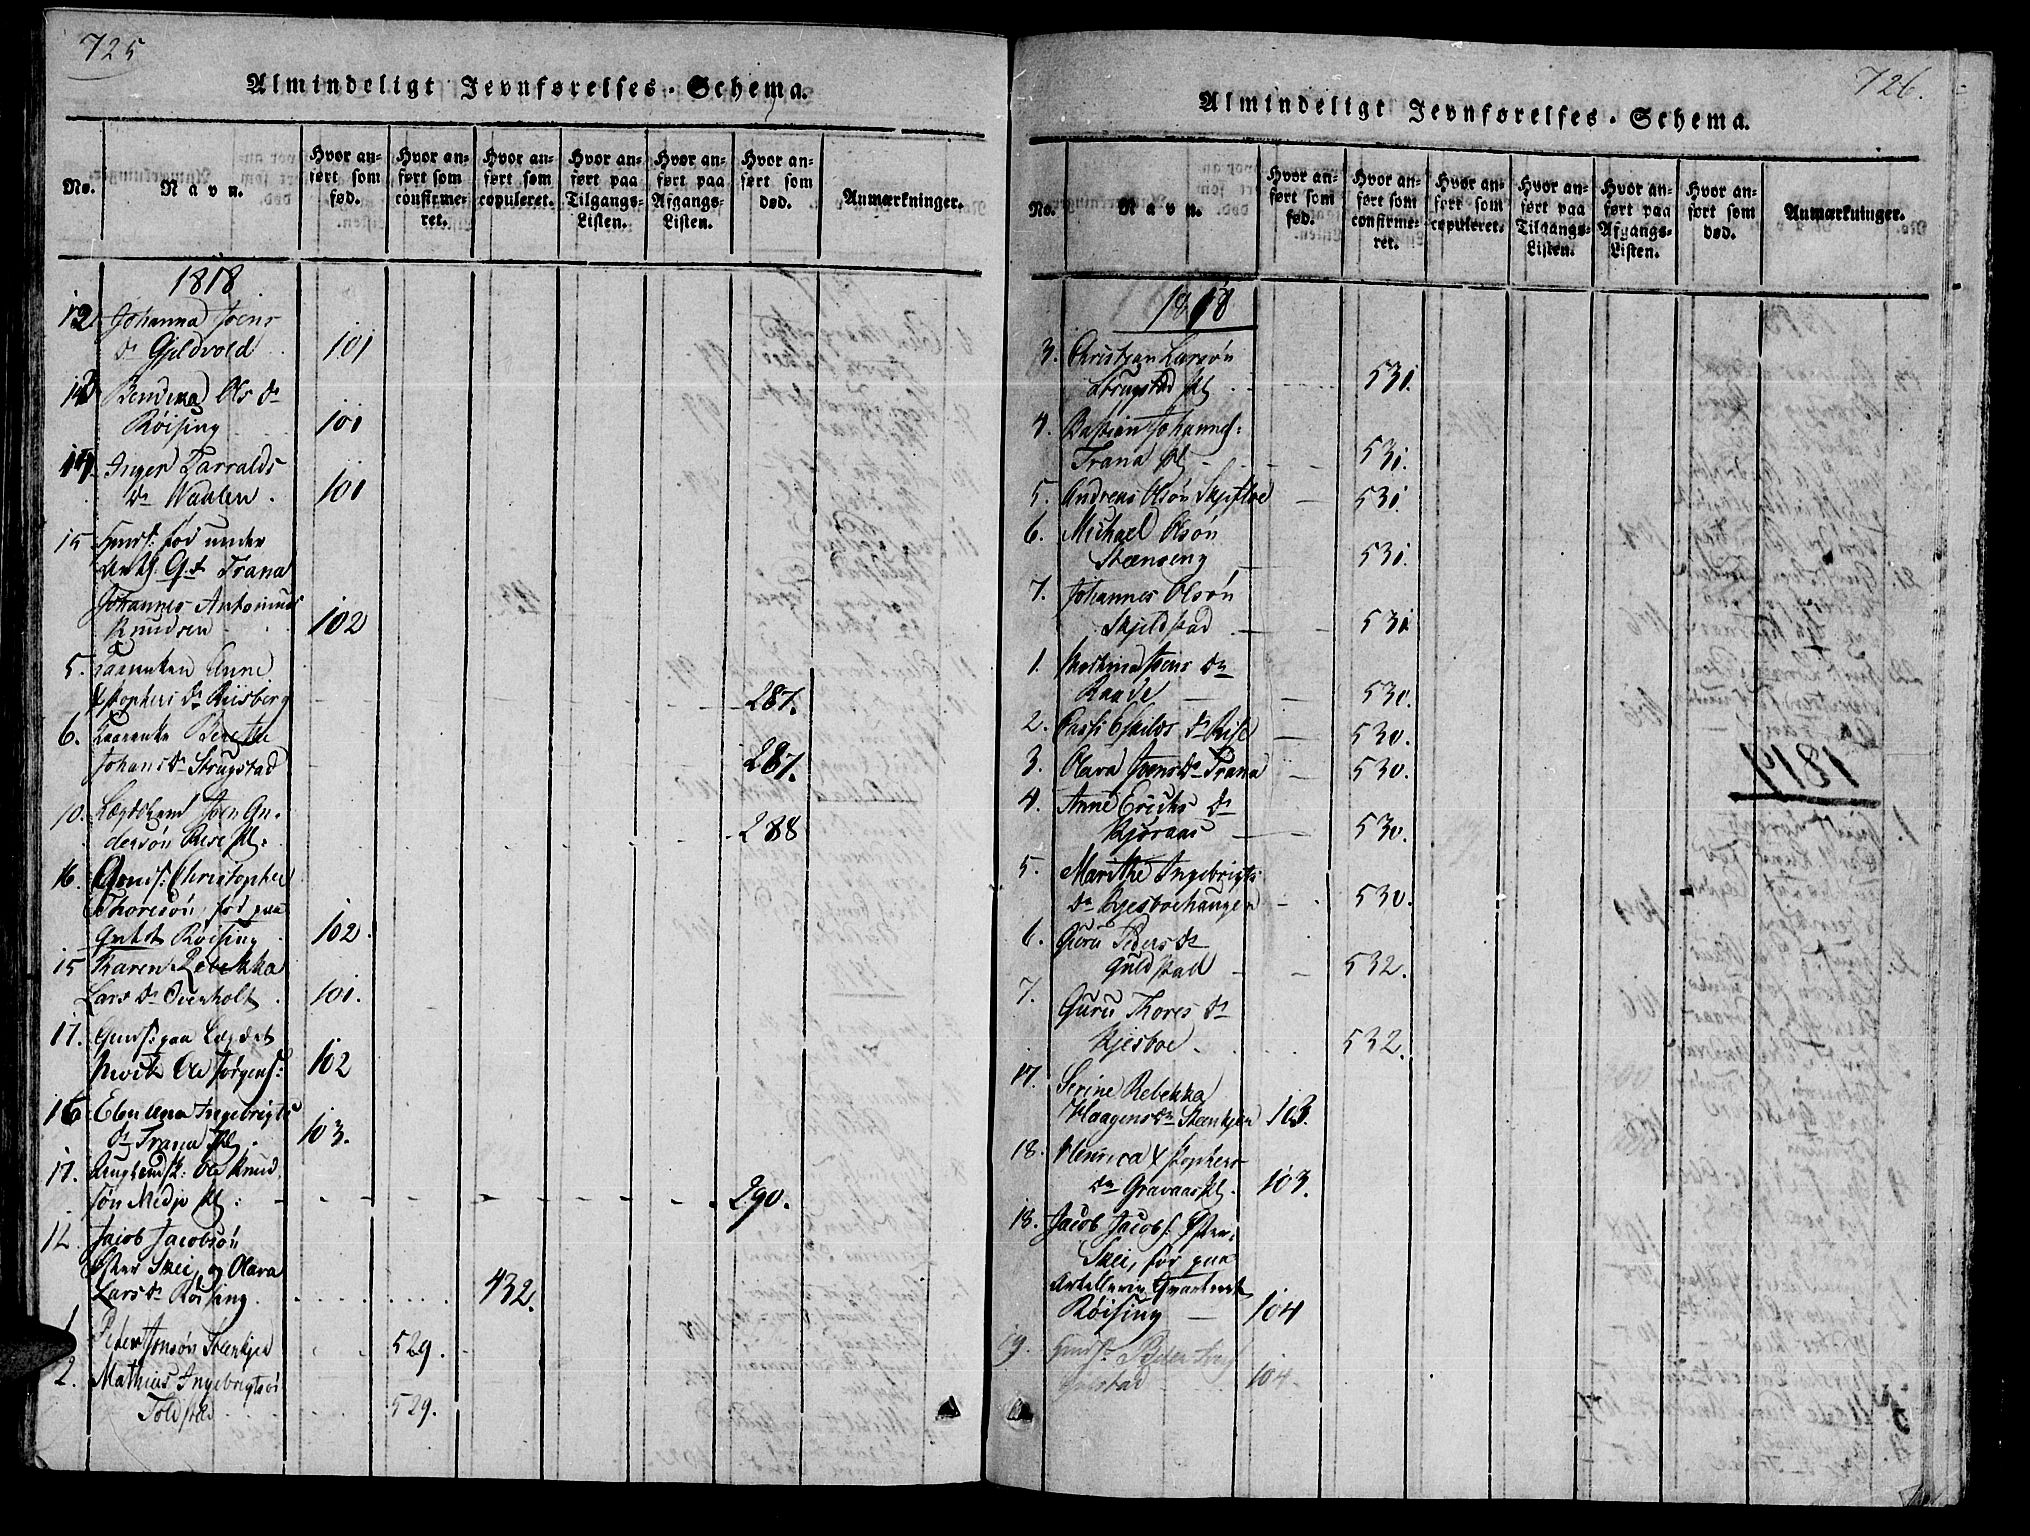 725
Almindeligt Jevnførelses-Schema.
No. Navn. Hvor anført som fød. Hvor anført som confirmeret. Hvor anført som copuleret. Hvor anført paa Tilgangs-Listen. Hvor anført paa Afgangs-Listen. Hvor anført som død. Anmærkninger.
1818
12 Johanna Joens
Dr Gjeldvold 101
13 Bendixa Ols Dr
Röising 101
14 Inger Tarralds
Dr Waalen . 101
15 fød under
Trana
Johannes Antonius
Knudsen 102
5. Anne
Xstophers Dr Riisberg 287.
6. Berethe
Johans Dr Strugstad 287.
10. Lægdskarl Joen An-
dersön Riise Pl: 288
16. Christopher
Thoresön, fød paa
Röising 102.
15 Karen Rebekka
Lars Dr Ovenholt . 101.
17. paa Lægdet
Ole Jörgens: 102
16 Elen Ana Ingebrigts
Dr Trana Pl . 103.
17. Ole Knud
sön Midjo Pl: 290.
12 Jacob Jacobsön
Öster Skei, og Olava
Lars Dr Röising. 432.
1 Peter Jonsön Steenkjer 529.
2. Mathias Ingebrigtsön
Toldstad 529.
726.
Almindeligt Jevnførelses-Schema.
No. Navn. Hvor anført som fød. Hvor anført som confirmeret. Hvor anført som copuleret. Hvor anført paa Tilgangs-Listen. Hvor anført paa Afgangs-Listen. Hvor anført som død. Anmærkninger.
1818
3. Christian Larsön
Strugstad Pl 531.
4. Bastian Johannes:
Trana Pl 531.
5. Andreas Olsön Skjeftoe 531
6. Michael Olsön
Stænseng 531.
7. Johannes Olsön
Skjeldstad 531
1. Joens Dr
Raade 530.
2. Eskilds Dr Rise 530.
3. Olava Joens Dr Trana 530.
4. Anne Erichs Dr
Kjöraas 530.
5. Marithe Ingebrigts
Dr Kjesboehaugen 530.
6. Guru Peders Dr
Guldstad 532.
7. Guru Thores Dr
Kjesboe 532.
17. Serine Rebekka
Haagens Dr Steenkjer 103.
18. Henrica Xstophers
Dr Gravaas Pl. 103.
18. Jacob Jacobs. Öster
Skei, fød paa
Artellerie Qvarteret
Röising 104
19. Peter
104.